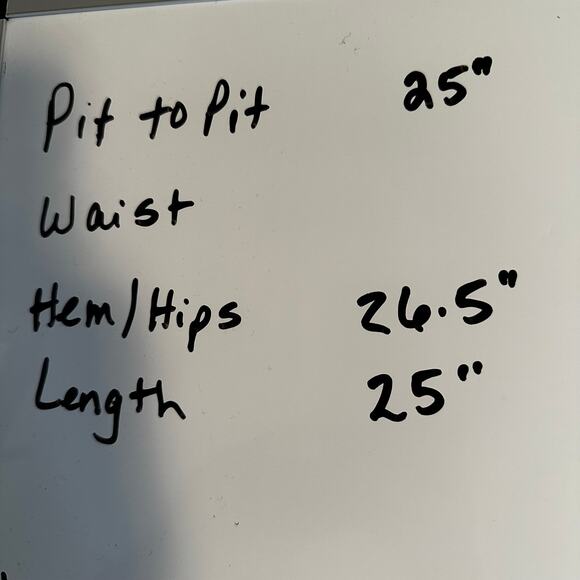 Pit to Pit 25"
Waist
Hem/Hips 26.5"
Length 25"